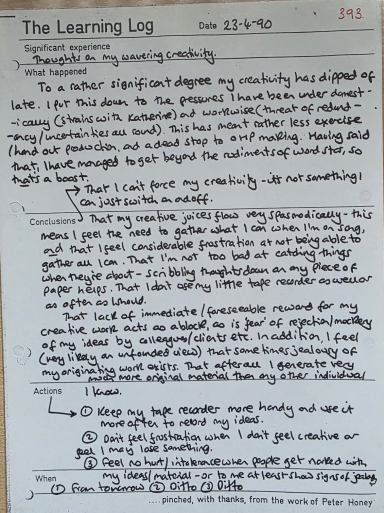 393
The Learning Log Date 23-4-90
Significant experience
Thoughts on my wavering creativity.
What happened
To a rather significant degree my creativity has dipped of
late. I put this down to the pressures I have been under domest-
-ically (strains with Katherine) and workwise (threat of redund-
-ancy/uncertainties all round). This has meant rather less exercise
(hand out production, and a dead stop to OHP making. Having said
that, I have managed to get beyond the rudiments of word star, so
that's a boost.
→ That I can't force my creativity - it's not something I
can just switch on and off.
Conclusions That my creative juices flow very spasmodically - this
means I feel the need to gather what I can when I'm on song,
and that I feel considerable frustration at not being able to
gather all I can. That I'm not too bad at catching things
when they're about - scribbling thoughts down on any piece of
paper helps. That I don't use my little tape recorder as well or
as often as I should.
That lack of immediate/foreseeable reward for my
creative work acts as a block, as is fear of rejection/mockery
of my ideas by colleagues/clients etc. In addition, I feel
(very likely an unfounded view) that sometimes jealousy of
my originating work exists. That after all I generate very
much more original material than any other individual
Actions I know.
→ ① Keep my tape recorder more handy and use it
more often to record my ideas.
② Don't feel frustration when I don't feel creative or
feel I may lose something.
③ Feel no hurt/intolerance when people get narked with
my ideas/material - or to me at least show signs of jealousy
When ① From tomorrow ② Ditto ③ Ditto
....pinched, with thanks, from the work of Peter Honey